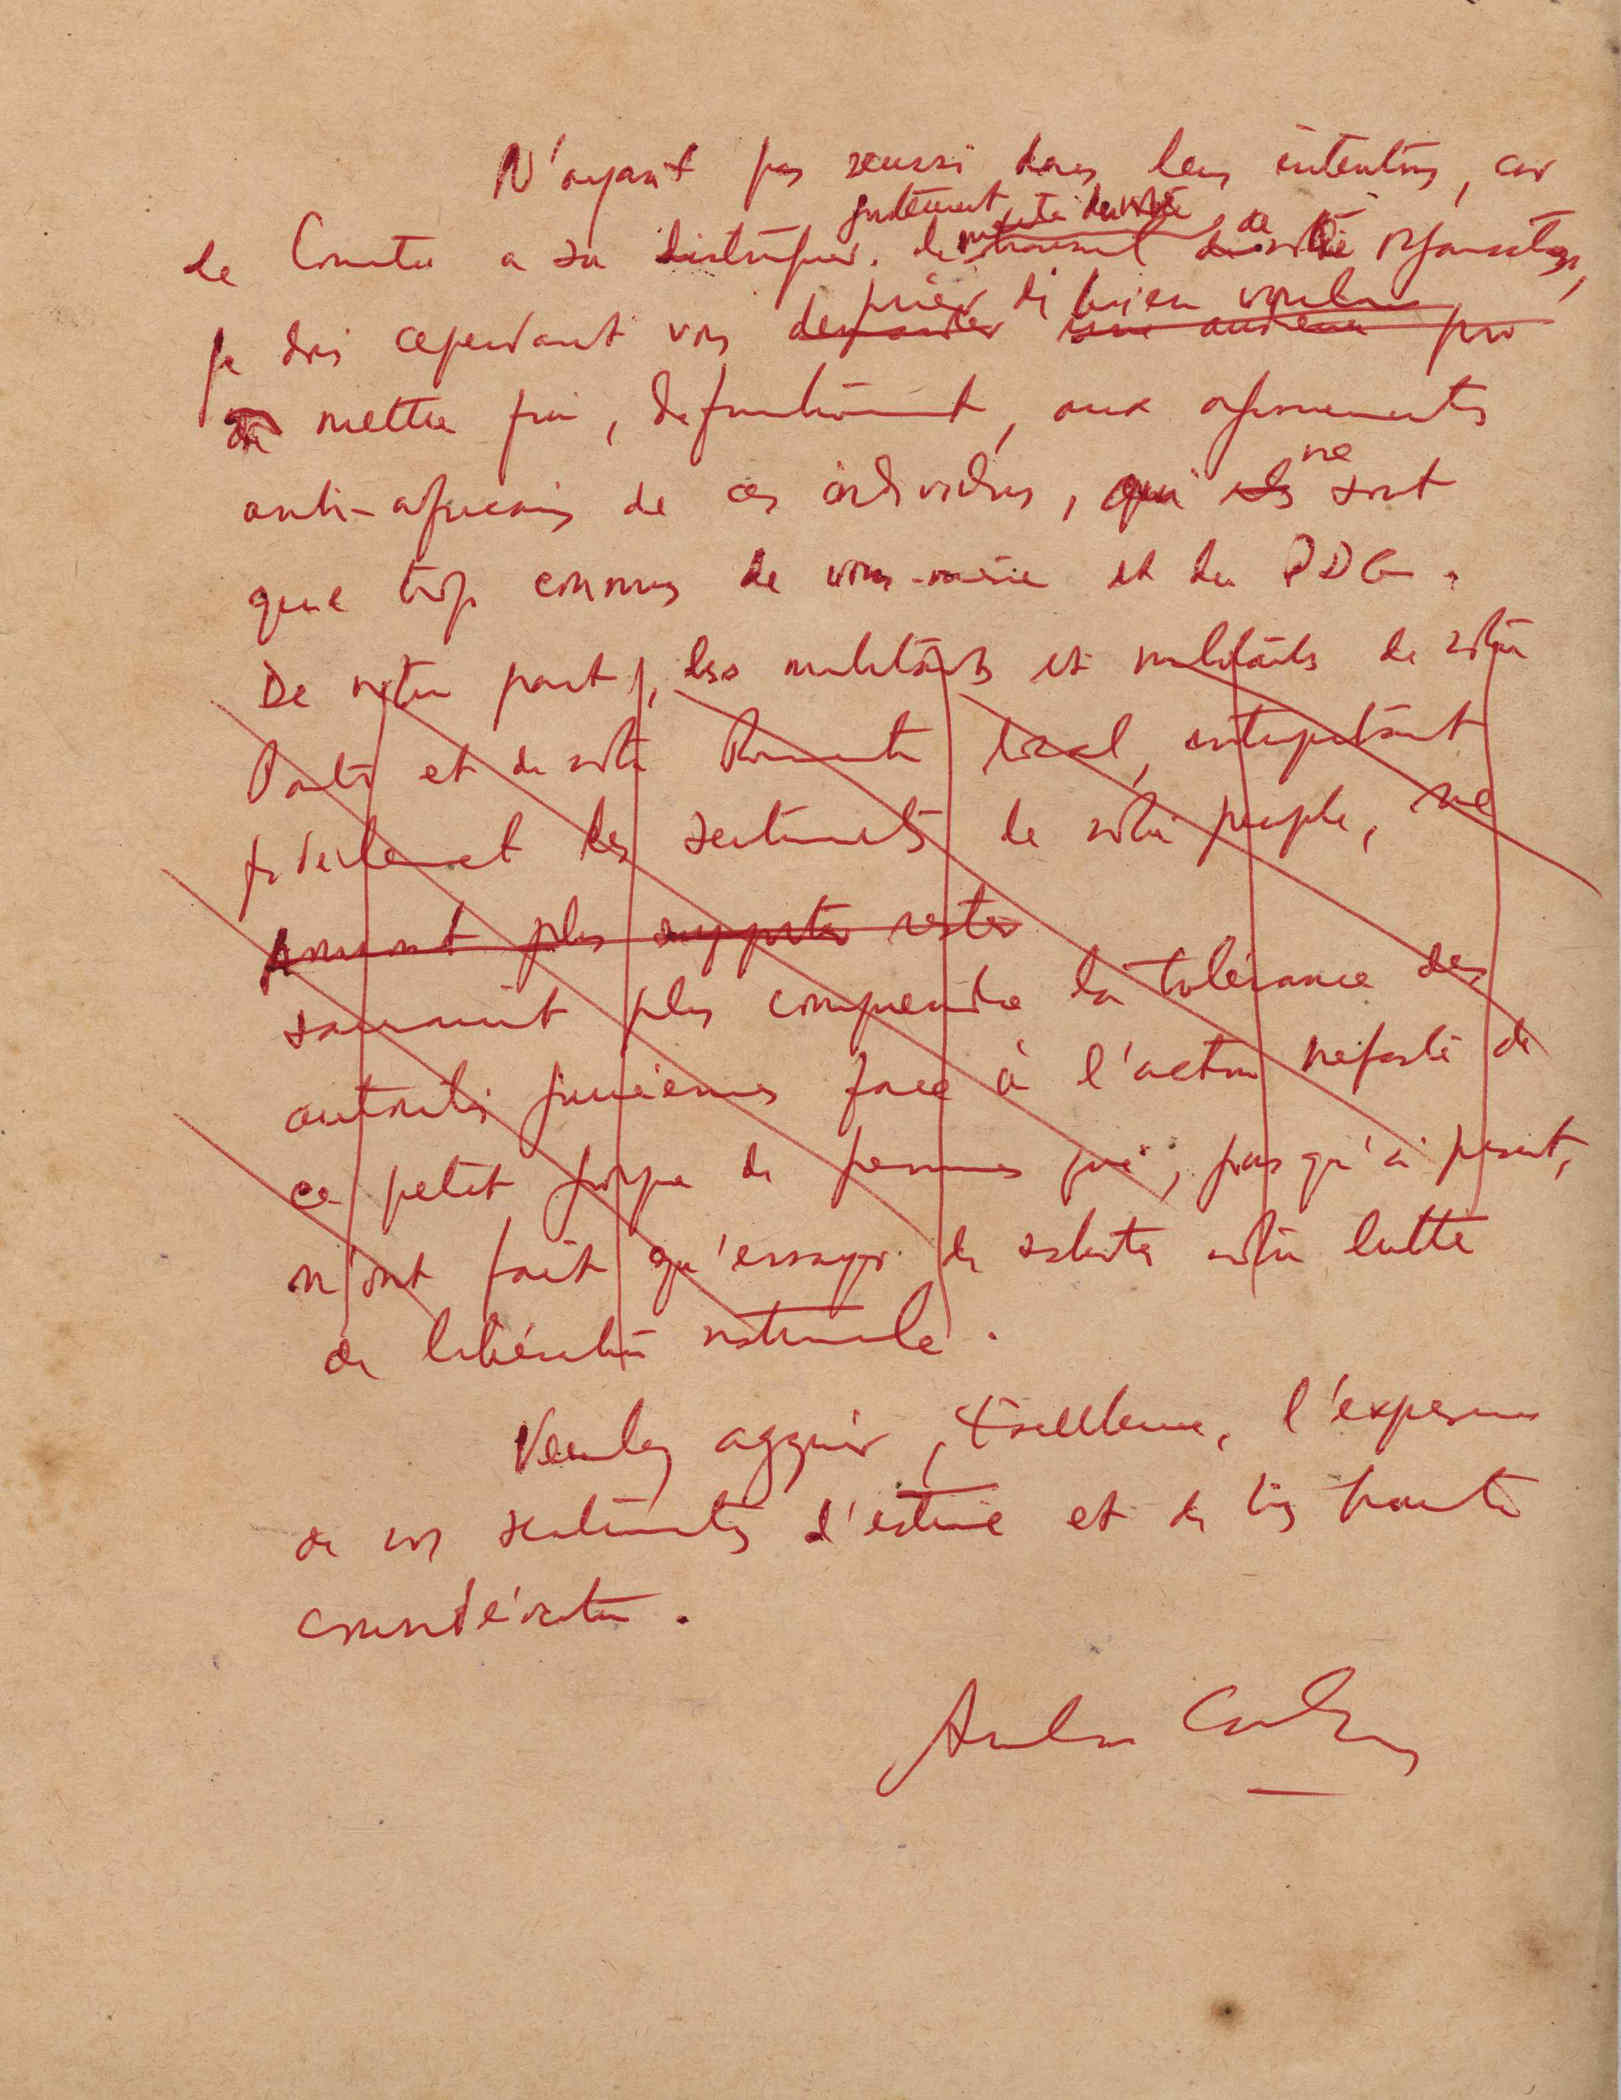 N'ayant pas reussi dans leurs intentions, car
justement
le Comité a su distinguer de notre organisation,
prier de bien vouloir
je dois cependant vous demander une audience pro
mettre fin, définitivement, aux agissements
ne
anti-africains de ces individus, qui ils sont
que trop connus de vous-même et du PDG.
De notre part, les militants et militants de notre
Parti et de notre Comité local, interprétant
fidèlement les sentiments de notre peuple, ne
pouvant plus supporter rester
sauraient plus comprendre la tolérance des
autorités guinéennes face à l'action néfaste de
ce petit groupe de personnes qui, jusqu'à présent,
n'ont fait qu'essayer de saboter notre lutte
de libération nationale.
Veuillez agréer, Excellence, l'expression
de nos sentiments d'estime et de très haute
considération.
Amilcar Cabral